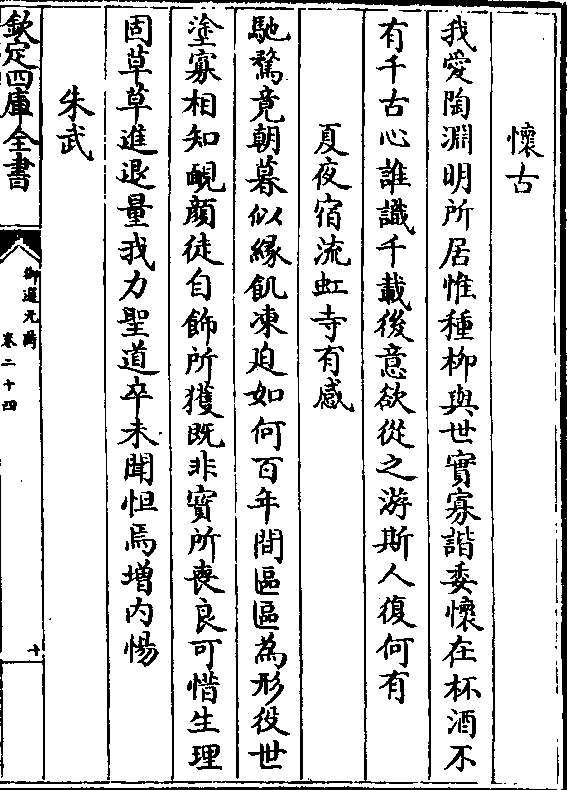 懷古
我愛陶淵明所居惟種柳與世實寡諧委懷在杯酒不
有千古心誰識千載後意欲從之游斯人復何有
夏夜宿流虹寺有感
馳騖竟朝暮似緣飢凍迫如何百年間區區為形役世
塗寡相知靦顏徒自飾所獲既非寳所喪良可惜生理
固草草進退量我力聖道卒未聞怛焉增内惕
朱武
欽定四庫全書
御選元詩
卷二十四
十